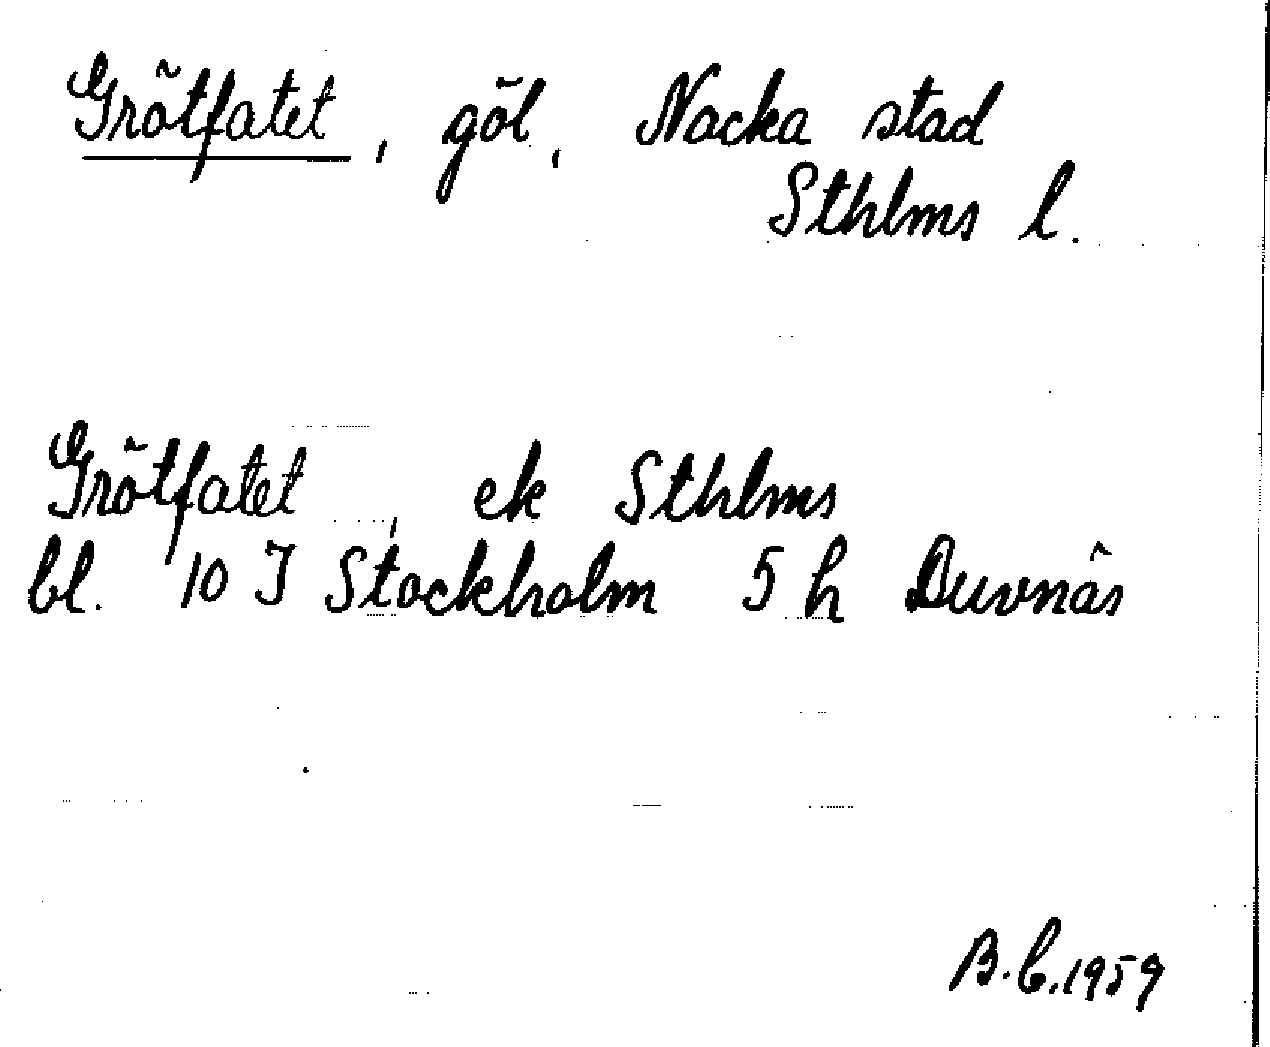 Grötfatet, göl, Nacka stad
Sthlms l.
Grötfatet, ek Sthlms
bl. 10 I Stockholm 5 h Duvnäs
B.C. 1959